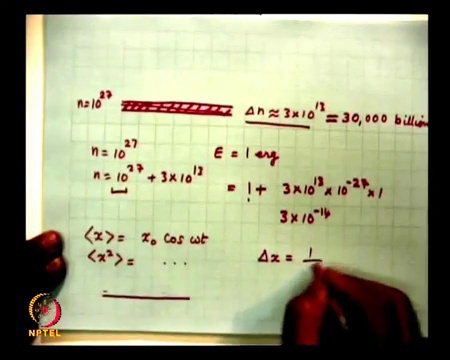 n=10^27 Δn ≈ 3×10^13 = 30,000 billion
n = 10^27 E = 1 erg
n = 10^27 + 3×10^13 = 1 + 3×10^13 × 10^-27 × 1
3×10^-14
⟨x⟩ = x₀ cos ωt
⟨x²⟩ = ... Δx = 1
NPTEL